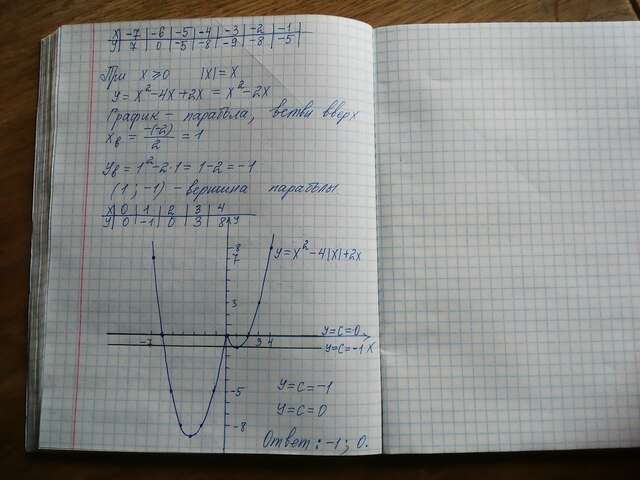 X -7 -6 -5 -4 -3 -2 -1
У 7 0 -5 -8 -9 -8 -5
При X ≥ 0 |X| = X
У = X² - 4X + 2X = X² - 2X
График - парабола, ветви вверх
Xв = -(-2)/2 = 1
Ув = 1² - 2·1 = 1 - 2 = -1
(1; -1) - вершина параболы
X 0 1 2 3 4
У 0 -1 0 3 8
У
8
7
У = X² - 4|X| + 2X
3
У = C = 0
-7 3 4
У = C = -1 X
У = C = -1
-5
У = C = 0
-8
Ответ: -1; 0.